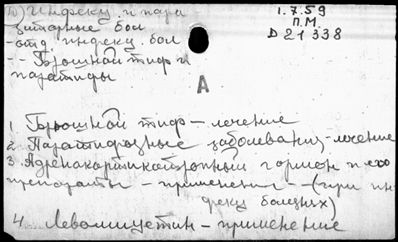 д) Инфекц. и пара
зитарные бол
-отд. инфекц. бол
-- Брюшной тиф и
паратифы
1.7.59
П.М.
D 21338
А
1. Брюшной тиф - лечение
2. Паратифозные заболевания - лечение
3. Адренакортикотропный гормон и его
препараты - применение - (при ин
фекц болезнях)
4. Левомицетин - применение